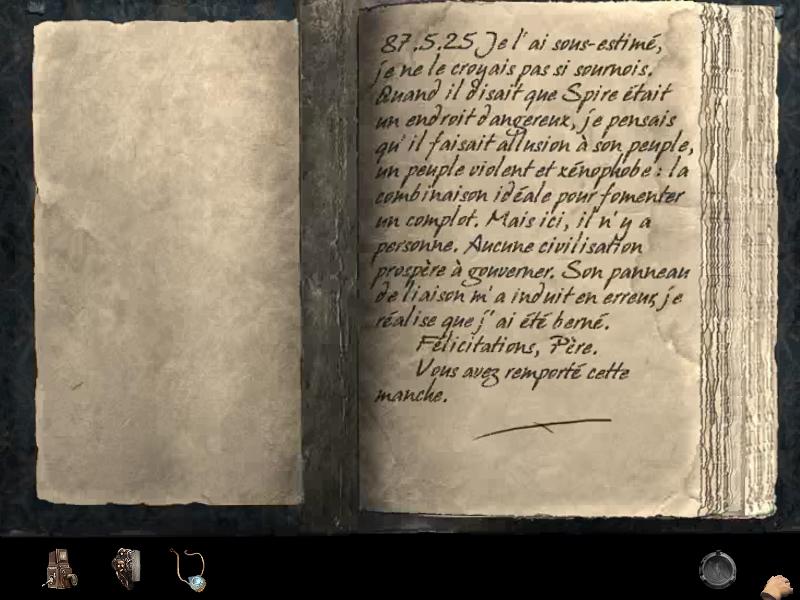 87.5.25 Je l'ai sous-estimé,
je ne le croyais pas si sournois.
Quand il disait que Spire était
un endroit dangereux, je pensais
qu'il faisait allusion à son peuple,
un peuple violent et xénophobe : la
combinaison idéale pour fomenter
un complot. Mais ici, il n'y a
personne. Aucune civilisation
prospère à gouverner. Son panneau
de liaison m'a induit en erreur, je
réalise que j'ai été berné.
Félicitations, Père.
Vous avez remporté cette
manche.